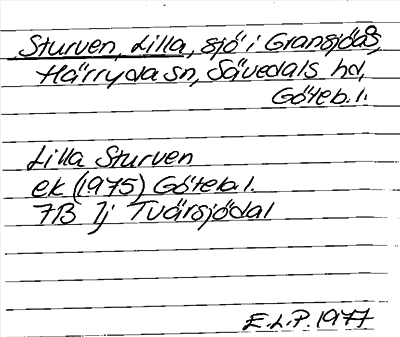 Sturven, Lilla, sjö i Gransjöås,
Härryda sn, Sävedals hd,
Göteb. l.
Lilla Sturven
ek (1975) Göteb. l.
7B 7j Tvärsjödal
E.L.P. 1977